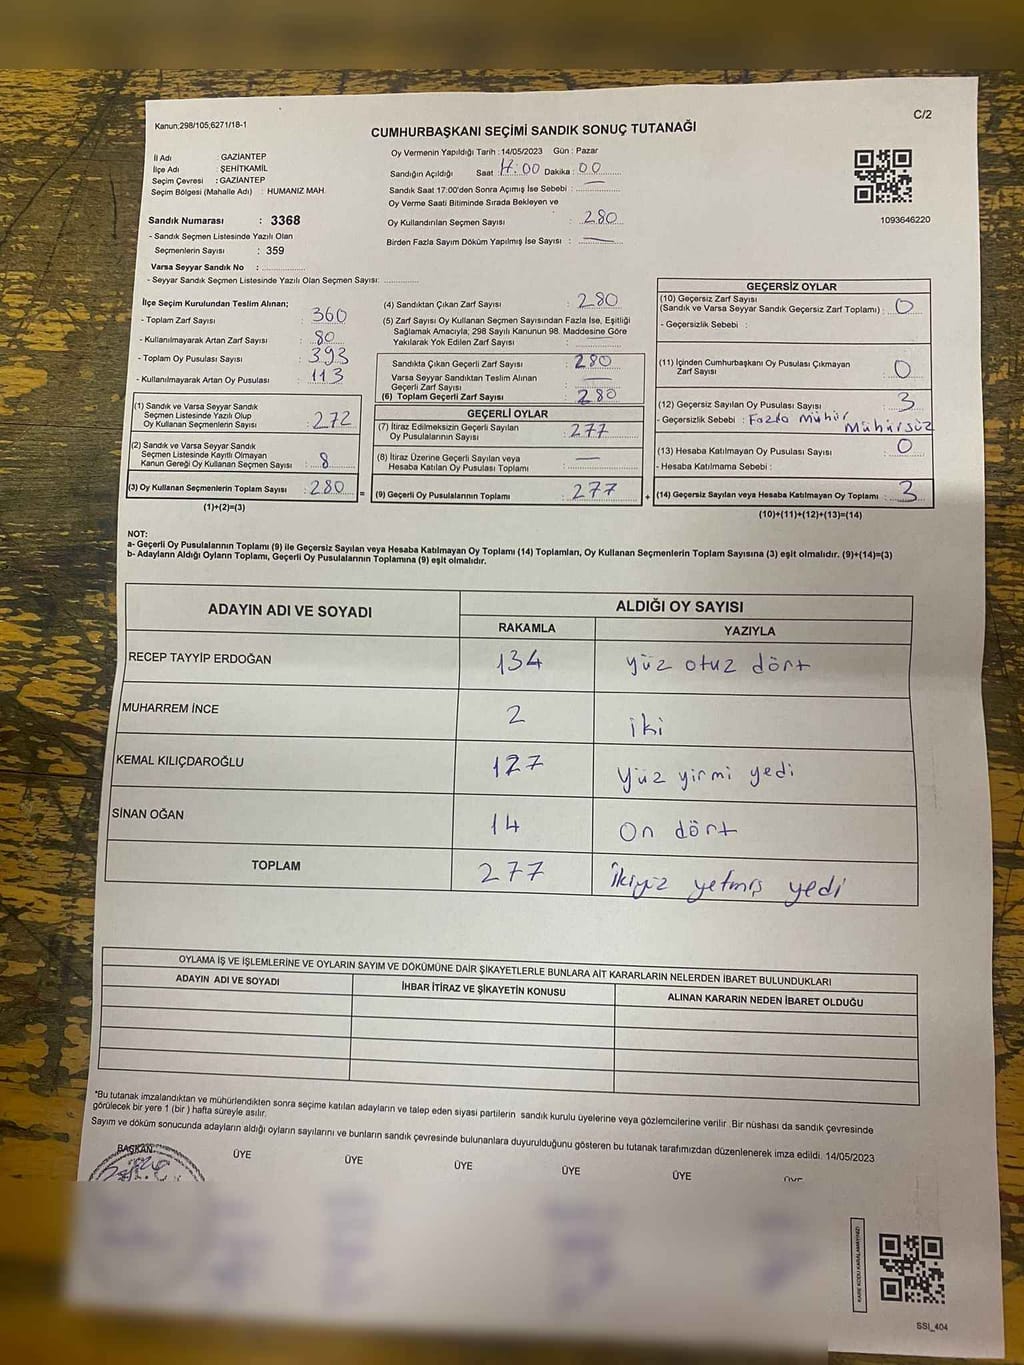 Kanun;298/105,6271/18-1
C/2
CUMHURBAŞKANI SEÇİMİ SANDIK SONUÇ TUTANAĞI
İl Adı : GAZİANTEP
İlçe Adı : ŞEHİTKAMİL
Seçim Çevresi : GAZİANTEP
Seçim Bölgesi (Mahalle Adı) : HUMANIZ MAH.
Sandık Numarası : 3368
- Sandık Seçmen Listesinde Yazılı Olan
Seçmenlerin Sayısı : 359
Varsa Seyyar Sandık No :
- Seyyar Sandık Seçmen Listesinde Yazılı Olan Seçmen Sayısı:
Oy Vermenin Yapıldığı Tarih : 14/05/2023 Gün : Pazar
Sandığın Açıldığı Saat : 17:00 Dakika : 00
Sandık Saat 17:00'den Sonra Açımış İse Sebebi :
Oy Verme Saati Bitiminde Sırada Bekleyen ve
Oy Kullandırılan Seçmen Sayısı : 280
Birden Fazla Sayım Döküm Yapılmış İse Sayısı :
1093646220
İlçe Seçim Kurulundan Teslim Alınan;
- Toplam Zarf Sayısı : 360
- Kullanılmayarak Artan Zarf Sayısı : 80
- Toplam Oy Pusulası Sayısı : 393
- Kullanılmayarak Artan Oy Pusulası : 113
(1) Sandık ve Varsa Seyyar Sandık
Seçmen Listesinde Yazılı Olup
Oy Kullanan Seçmenlerin Sayısı : 272
(2) Sandık ve Varsa Seyyar Sandık
Seçmen Listesinde Kayıtlı Olmayan
Kanun Gereği Oy Kullanan Seçmen Sayısı : 8
(3) Oy Kullanan Seçmenlerin Toplam Sayısı : 280
(1)+(2)=(3)
(4) Sandıktan Çıkan Zarf Sayısı : 280
(5) Zarf Sayısı Oy Kullanan Seçmen Sayısından Fazla İse, Eşitliği
Sağlamak Amacıyla; 298 Sayılı Kanunun 98. Maddesine Göre
Yakılarak Yok Edilen Zarf Sayısı :
Sandıkta Çıkan Geçerli Zarf Sayısı : 280
Varsa Seyyar Sandıktan Teslim Alınan
Geçerli Zarf Sayısı :
(6) Toplam Geçerli Zarf Sayısı : 280
GEÇERLİ OYLAR
(7) İtiraz Edilmeksizin Geçerli Sayılan
Oy Pusulalarının Sayısı : 277
(8) İtiraz Üzerine Geçerli Sayılan veya
Hesaba Katılan Oy Pusulası Toplamı :
= (9) Geçerli Oy Pusulalarının Toplamı : 277
GEÇERSİZ OYLAR
(10) Geçersiz Zarf Sayısı
(Sandık ve Varsa Seyyar Sandık Geçersiz Zarf Toplamı) : 0
- Geçersizlik Sebebi :
(11) İçinden Cumhurbaşkanı Oy Pusulası Çıkmayan
Zarf Sayısı : 0
(12) Geçersiz Sayılan Oy Pusulası Sayısı : 3
- Geçersizlik Sebebi : Fazla Mühür
Mühürsüz
(13) Hesaba Katılmayan Oy Pusulası Sayısı : 0
- Hesaba Katılmama Sebebi :
+ (14) Geçersiz Sayılan veya Hesaba Katılmayan Oy Toplamı : 3
(10)+(11)+(12)+(13)=(14)
NOT:
a- Geçerli Oy Pusulalarının Toplamı (9) ile Geçersiz Sayılan veya Hesaba Katılmayan Oy Toplamı (14) Toplamları, Oy Kullanan Seçmenlerin Toplam Sayısına (3) eşit olmalıdır. (9)+(14)=(3)
b- Adayların Aldığı Oyların Toplamı, Geçerli Oy Pusulalarının Toplamına (9) eşit olmalıdır.
ADAYIN ADI VE SOYADI
ALDIĞI OY SAYISI
RAKAMLA YAZIYLA
RECEP TAYYİP ERDOĞAN 134 yüz otuz dört
MUHARREM İNCE 2 iki
KEMAL KILIÇDAROĞLU 127 yüz yirmi yedi
SİNAN OĞAN 14 on dört
TOPLAM 277 İkiyüz yetmiş yedi
OYLAMA İŞ VE İŞLEMLERİNE VE OYLARIN SAYIM VE DÖKÜMÜNE DAİR ŞİKAYETLERLE BUNLARA AİT KARARLARIN NELERDEN İBARET BULUNDUKLARI
ADAYIN ADI VE SOYADI İHBAR İTİRAZ VE ŞİKAYETİN KONUSU ALINAN KARARIN NEDEN İBARET OLDUĞU
*Bu tutanak imzalandıktan ve mühürlendikten sonra seçime katılan adayların ve talep eden siyasi partilerin sandık kurulu üyelerine veya gözlemcilerine verilir .Bir nüshası da sandık çevresinde
görülecek bir yere 1 (bir ) hafta süreyle asılır.
Sayım ve döküm sonucunda adayların aldığı oyların sayılarını ve bunların sandık çevresinde bulunanlara duyurulduğunu gösteren bu tutanak tarafımızdan düzenlenerek imza edildi. 14/05/2023
BAŞKAN ÜYE ÜYE ÜYE ÜYE ÜYE ÜYE
KARE KODU KARALAMAYINIZ!
SSI_404